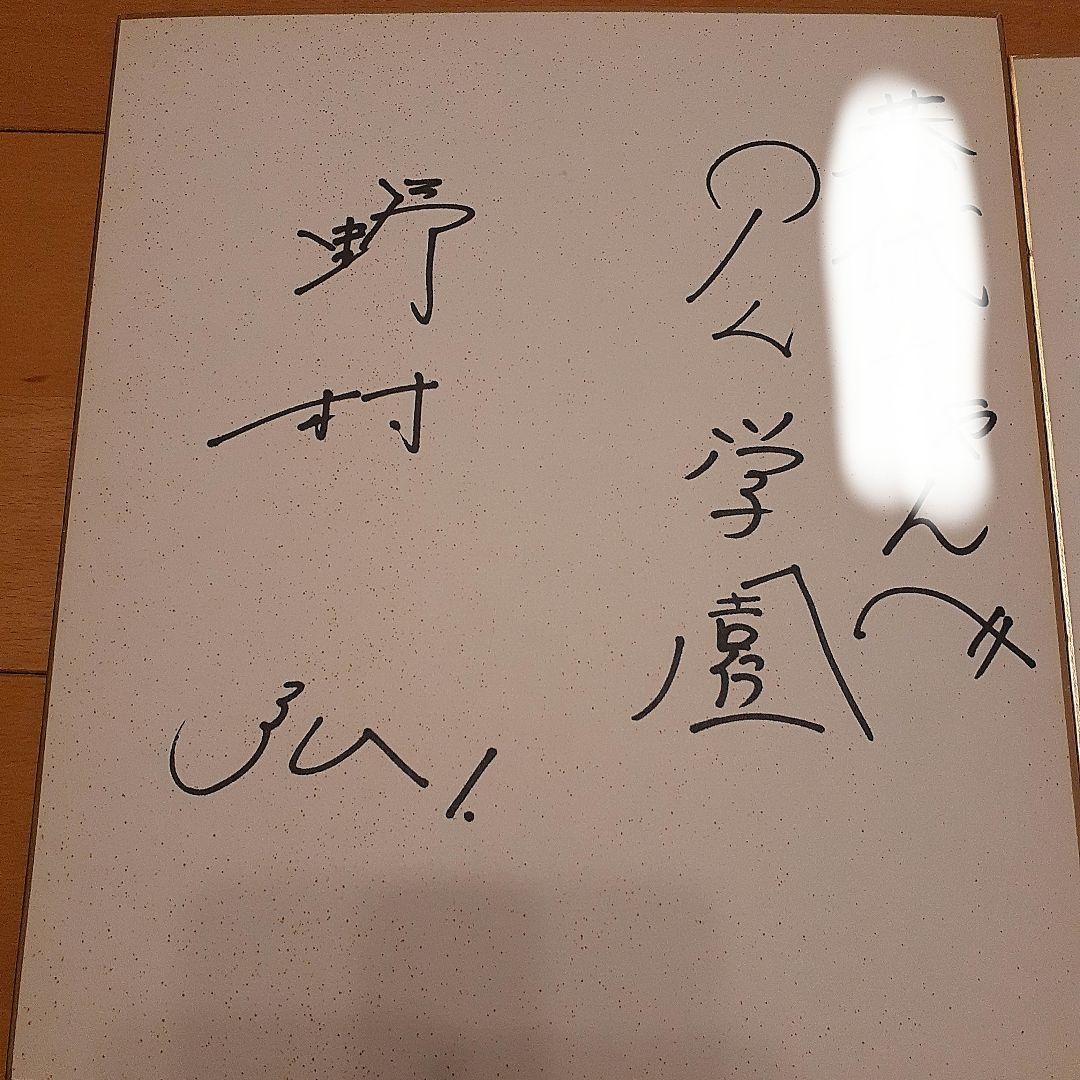 んへ
PL学園
野村弘!